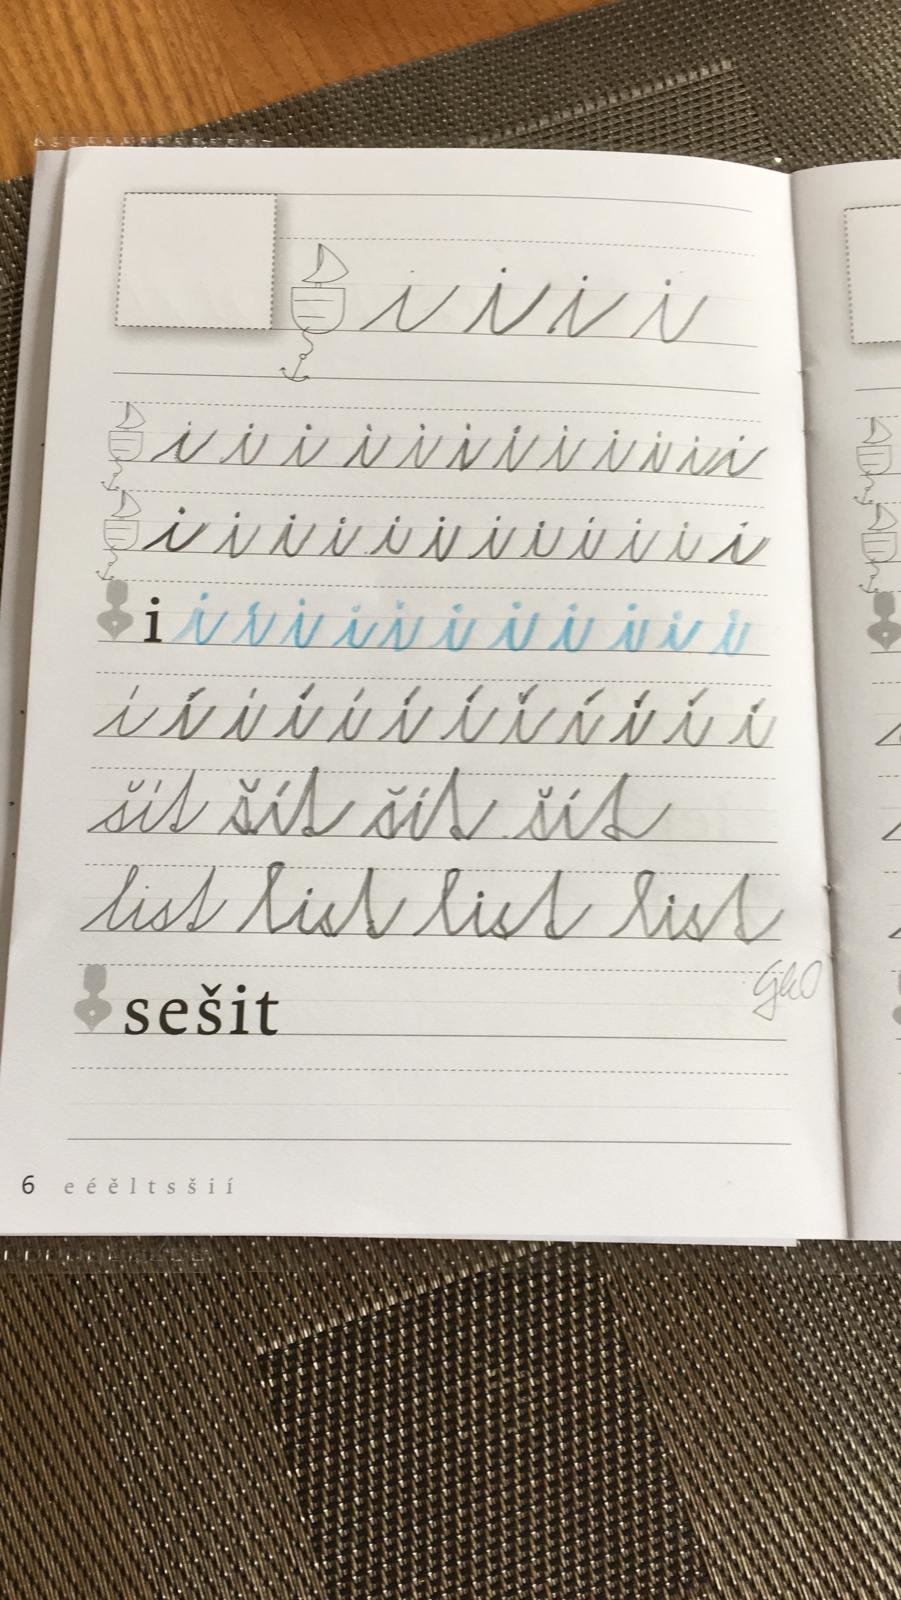 i i i i
i i i i i i i i i i i i
i i i i i i i i i i i i
i i i i i i i i i i i i
í í í í í í í í í í í í
šít šít šít šít
list list list list
sešit
6 e é ě l t s š i í